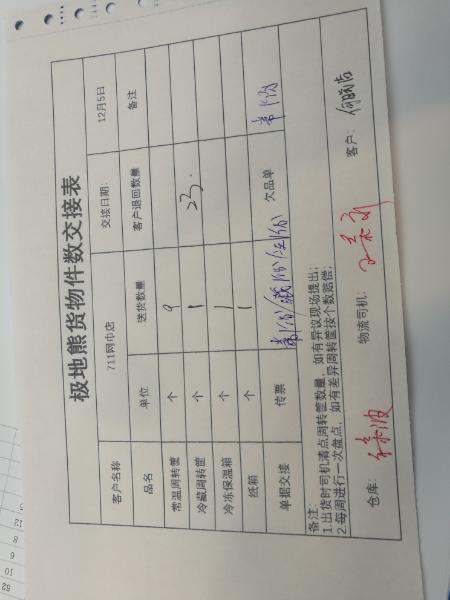 极地熊货物件数交接表
客户名称 711网巾店 交接日期: 12月5日
品名 单位 送货数量 客户退回数量 备注
常温周转筐 个 9
冷藏周转筐 个 1 23.
冷冻保温箱 个 1
纸箱 个 1
单据交接 传票 欠品单
备注:
1.出货时司机清点周转筐数量,如有异议现场提出;
2.每周进行一次盘点,如有差异周转筐按个数赔偿;
仓库: 物流司机: 客户:
52
10
6
8
12
5